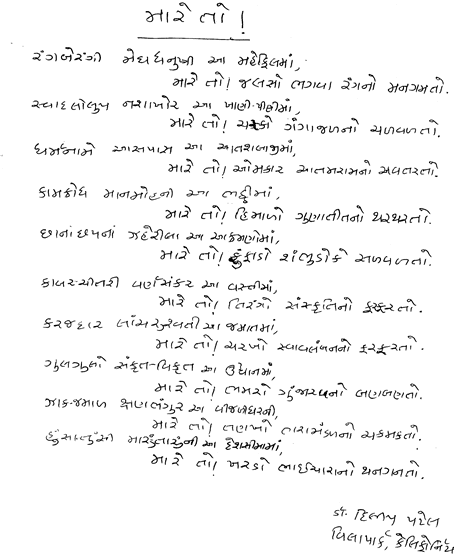 મારે તો!
રંગબેરંગી મેઘધનુષી આ મહેફિલમાં,
મારે તો! જલસો ભગવા રંગનો મનગમતો.
સ્વાદલોલુપ નશાખોર આ ખાણી-પીણીમાં,
મારે તો! ચસ્કો ગંગાજળનો ચળવળતો.
ધર્મનામે આસપાસ આ આતશબાજીમાં,
મારે તો! ઓમકાર આતમરામનો અવતરતો.
કામક્રોધ માનમોહની આ ભઠ્ઠીમાં,
મારે તો! હિમાળો ગુણાતીતનો થરથરતો.
છાનાંછપનાં ઝહેરીલા આ આક્રમણોમાં,
મારે તો! ફુંફાડો શંભુડોકે સળવળતો.
કાબરચીતરી વર્ણસંકર આ વસ્તીમાં,
મારે તો! તિરંગો સંસ્કૃતિનો ફરફરતો.
કરજદાર આ જમાતમાં,
મારે તો! ચરખો સ્વાવલંબનનો ફરફરતો.
ગુલગુલો સંકૃત-વિકૃત આ ઉદ્યાનમાં,
મારે તો! ભમરો ગુંજારવનો બણબણતો.
ઝાકઝમાળ ક્ષણભંગુર આ વીજળીઘરની,
મારે તો! તણખો તારામંડળનો ચકમકતો.
હુંસાતુંસી મારુંતારુંની આ દેશસીમામાં,
મારે તો! ખરડો ભાઈચારાનો થનગનતો.
ડૉ. દિલીપ પટેલ
વિલાપાર્ક, કેલિફોર્નિયા